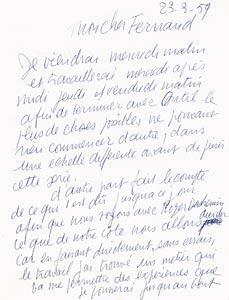 23.3.59
Mon cher Fernand
Je viendrai mercredi matin
et travaillerai mercredi après
midi jeudi et vendredi matin
afin de terminer avec le
plus de choses possibles ne pouvant
rien commencer d'autre, dans
une échelle différente avant de finir
cette série.
d'autre part fait le compte
de ce qui t'est dû jusqu'à ce jour
afin que nous voyons avec Roger
ce que de notre côté nous allons
car en faisant directement, sans essais,
le travail j'ai trouvé un métier qui
va me permettre des expériences que
je pousserai jusqu'au bout